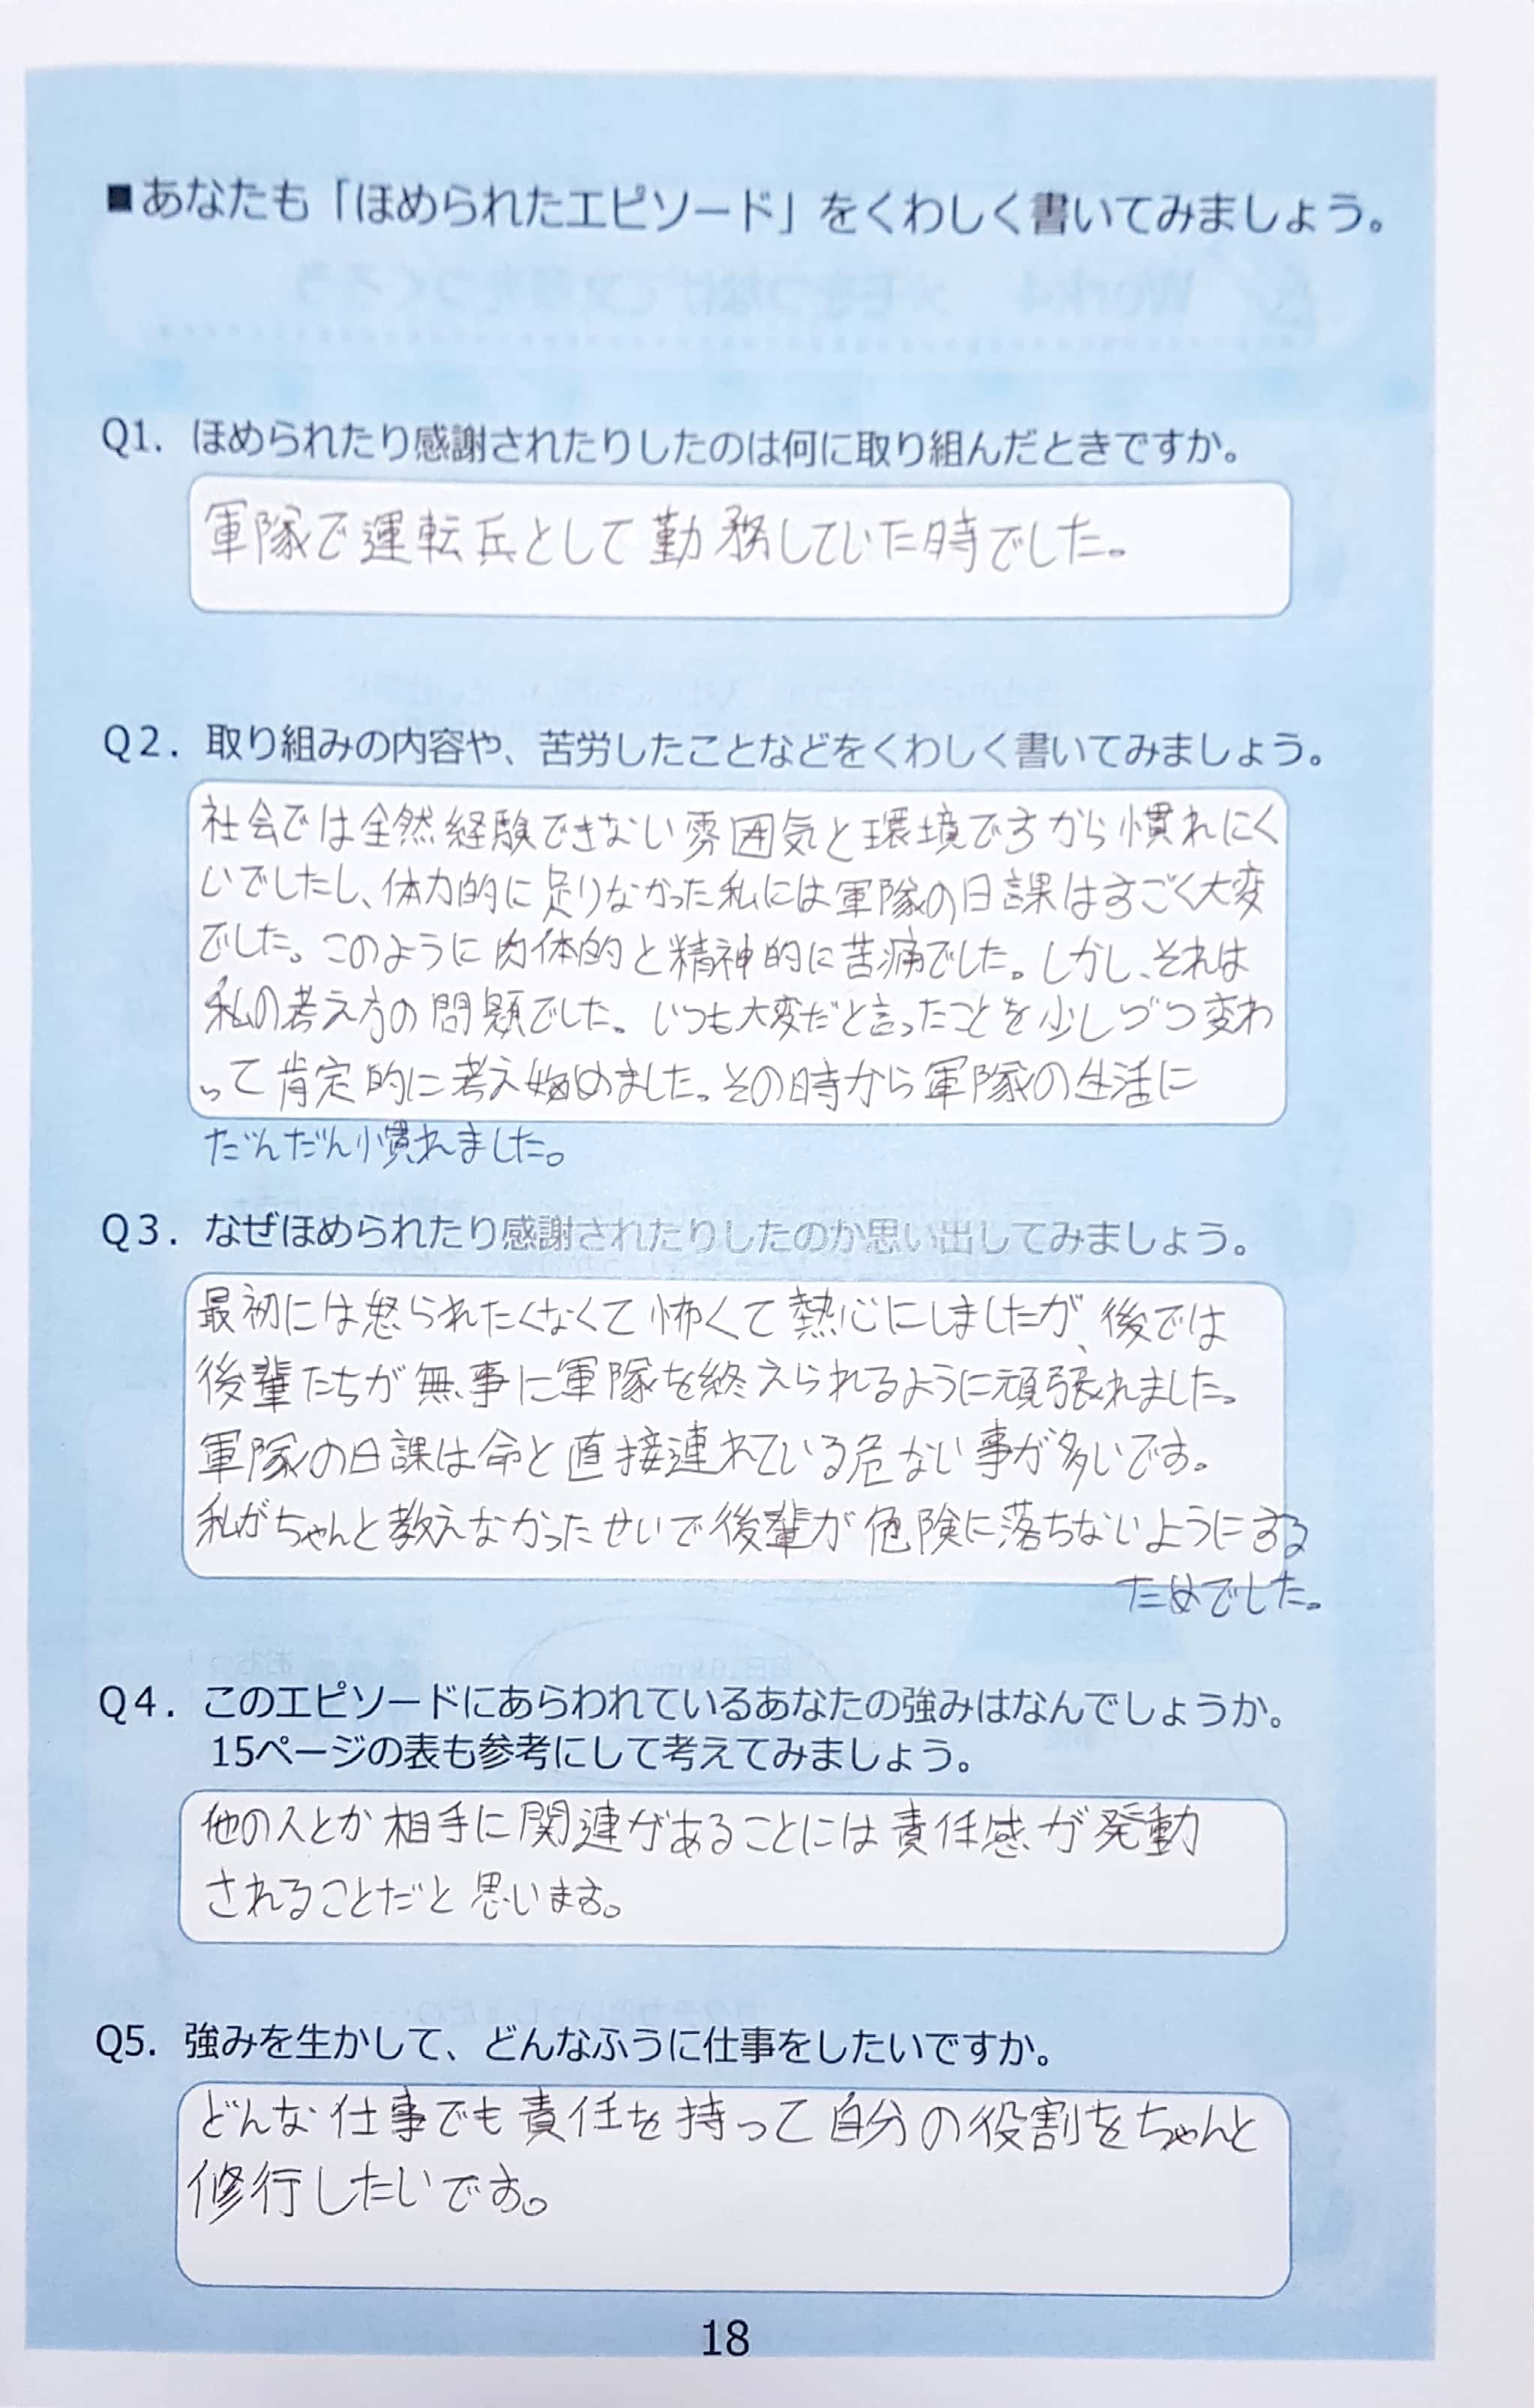 ■あなたも「ほめられたエピソード」をくわしく書いてみましょう。
Q1. ほめられたり感謝されたりしたのは何に取り組んだときですか。
軍隊で運転兵として勤務していた時でした。
Q2. 取り組みの内容や、苦労したことなどをくわしく書いてみましょう。
社会では全然経験できない雰囲気と環境ですから慣れにく
いでしたし、体力的に足りなかった私には軍隊の日課はすごく大変
でした。このように肉体的と精神的に苦痛でした。しかし、それは
私の考え方の問題でした。いつも大変だと言ったことを少しづつ変わ
って肯定的に考え始めました。その時から軍隊の生活に
だんだん慣れました。
Q3. なぜほめられたり感謝されたりしたのか思い出してみましょう。
最初には怒られたくなくて怖くて熱心にしましたが、後では
後輩たちが無事に軍隊を終えられるように頑張れました。
軍隊の日課は命と直接連れている危ない事が多いです。
私がちゃんと教えなかったせいで後輩が危険に落ちないようにする
ためでした。
Q4. このエピソードにあらわれているあなたの強みはなんでしょうか。
15ページの表も参考にして考えてみましょう。
他の人とか相手に関連があることには責任感が発動
されることだと思います。
Q5. 強みを生かして、どんなふうに仕事をしたいですか。
どんな仕事でも責任を持って自分の役割をちゃんと
修行したいです。
18